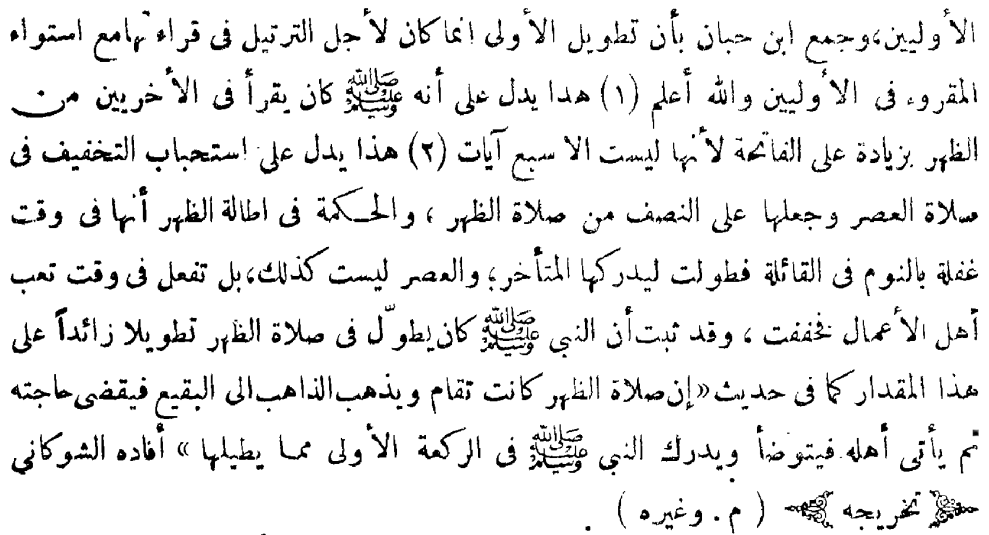 الأوليين، وجمع ابن حبان بأن تطويل الأولى انما كان لأجل الترتيل فى قراءتها مع استواء
المقروء فى الأوليين والله أعلم (١) هذا يدل على أنه ﷺ كان يقرأ فى الأخريين من
الظهر بزيادة على الفاتحة لأنها ليست الا سبع آيات (٢) هذا يدل على استحباب التخفيف فى
صلاة العصر وجعلها على النصف من صلاة الظهر ، والحكمة فى اطالة الظهر أنها فى وقت
غفلة بالنوم فى القائلة فطولت ليدركها المتأخر، والعصر ليست كذلك، بل تفعل فى وقت تعب
أهل الأعمال فخففت ، وقد ثبت أن النبى ﷺ كان يطوّل فى صلاة الظهر تطويلا زائداً على
هذا المقدار كما فى حديث «إن صلاة الظهر كانت تقام ويذهب الذاهب الى البقيع فيقضى حاجته
ثم يأتى أهله فيتوضأ ويدرك النبى ﷺ فى الركعة الأولى مما يطيلها » أفاده الشوكاني
تخريجه ( م . وغيره ) .